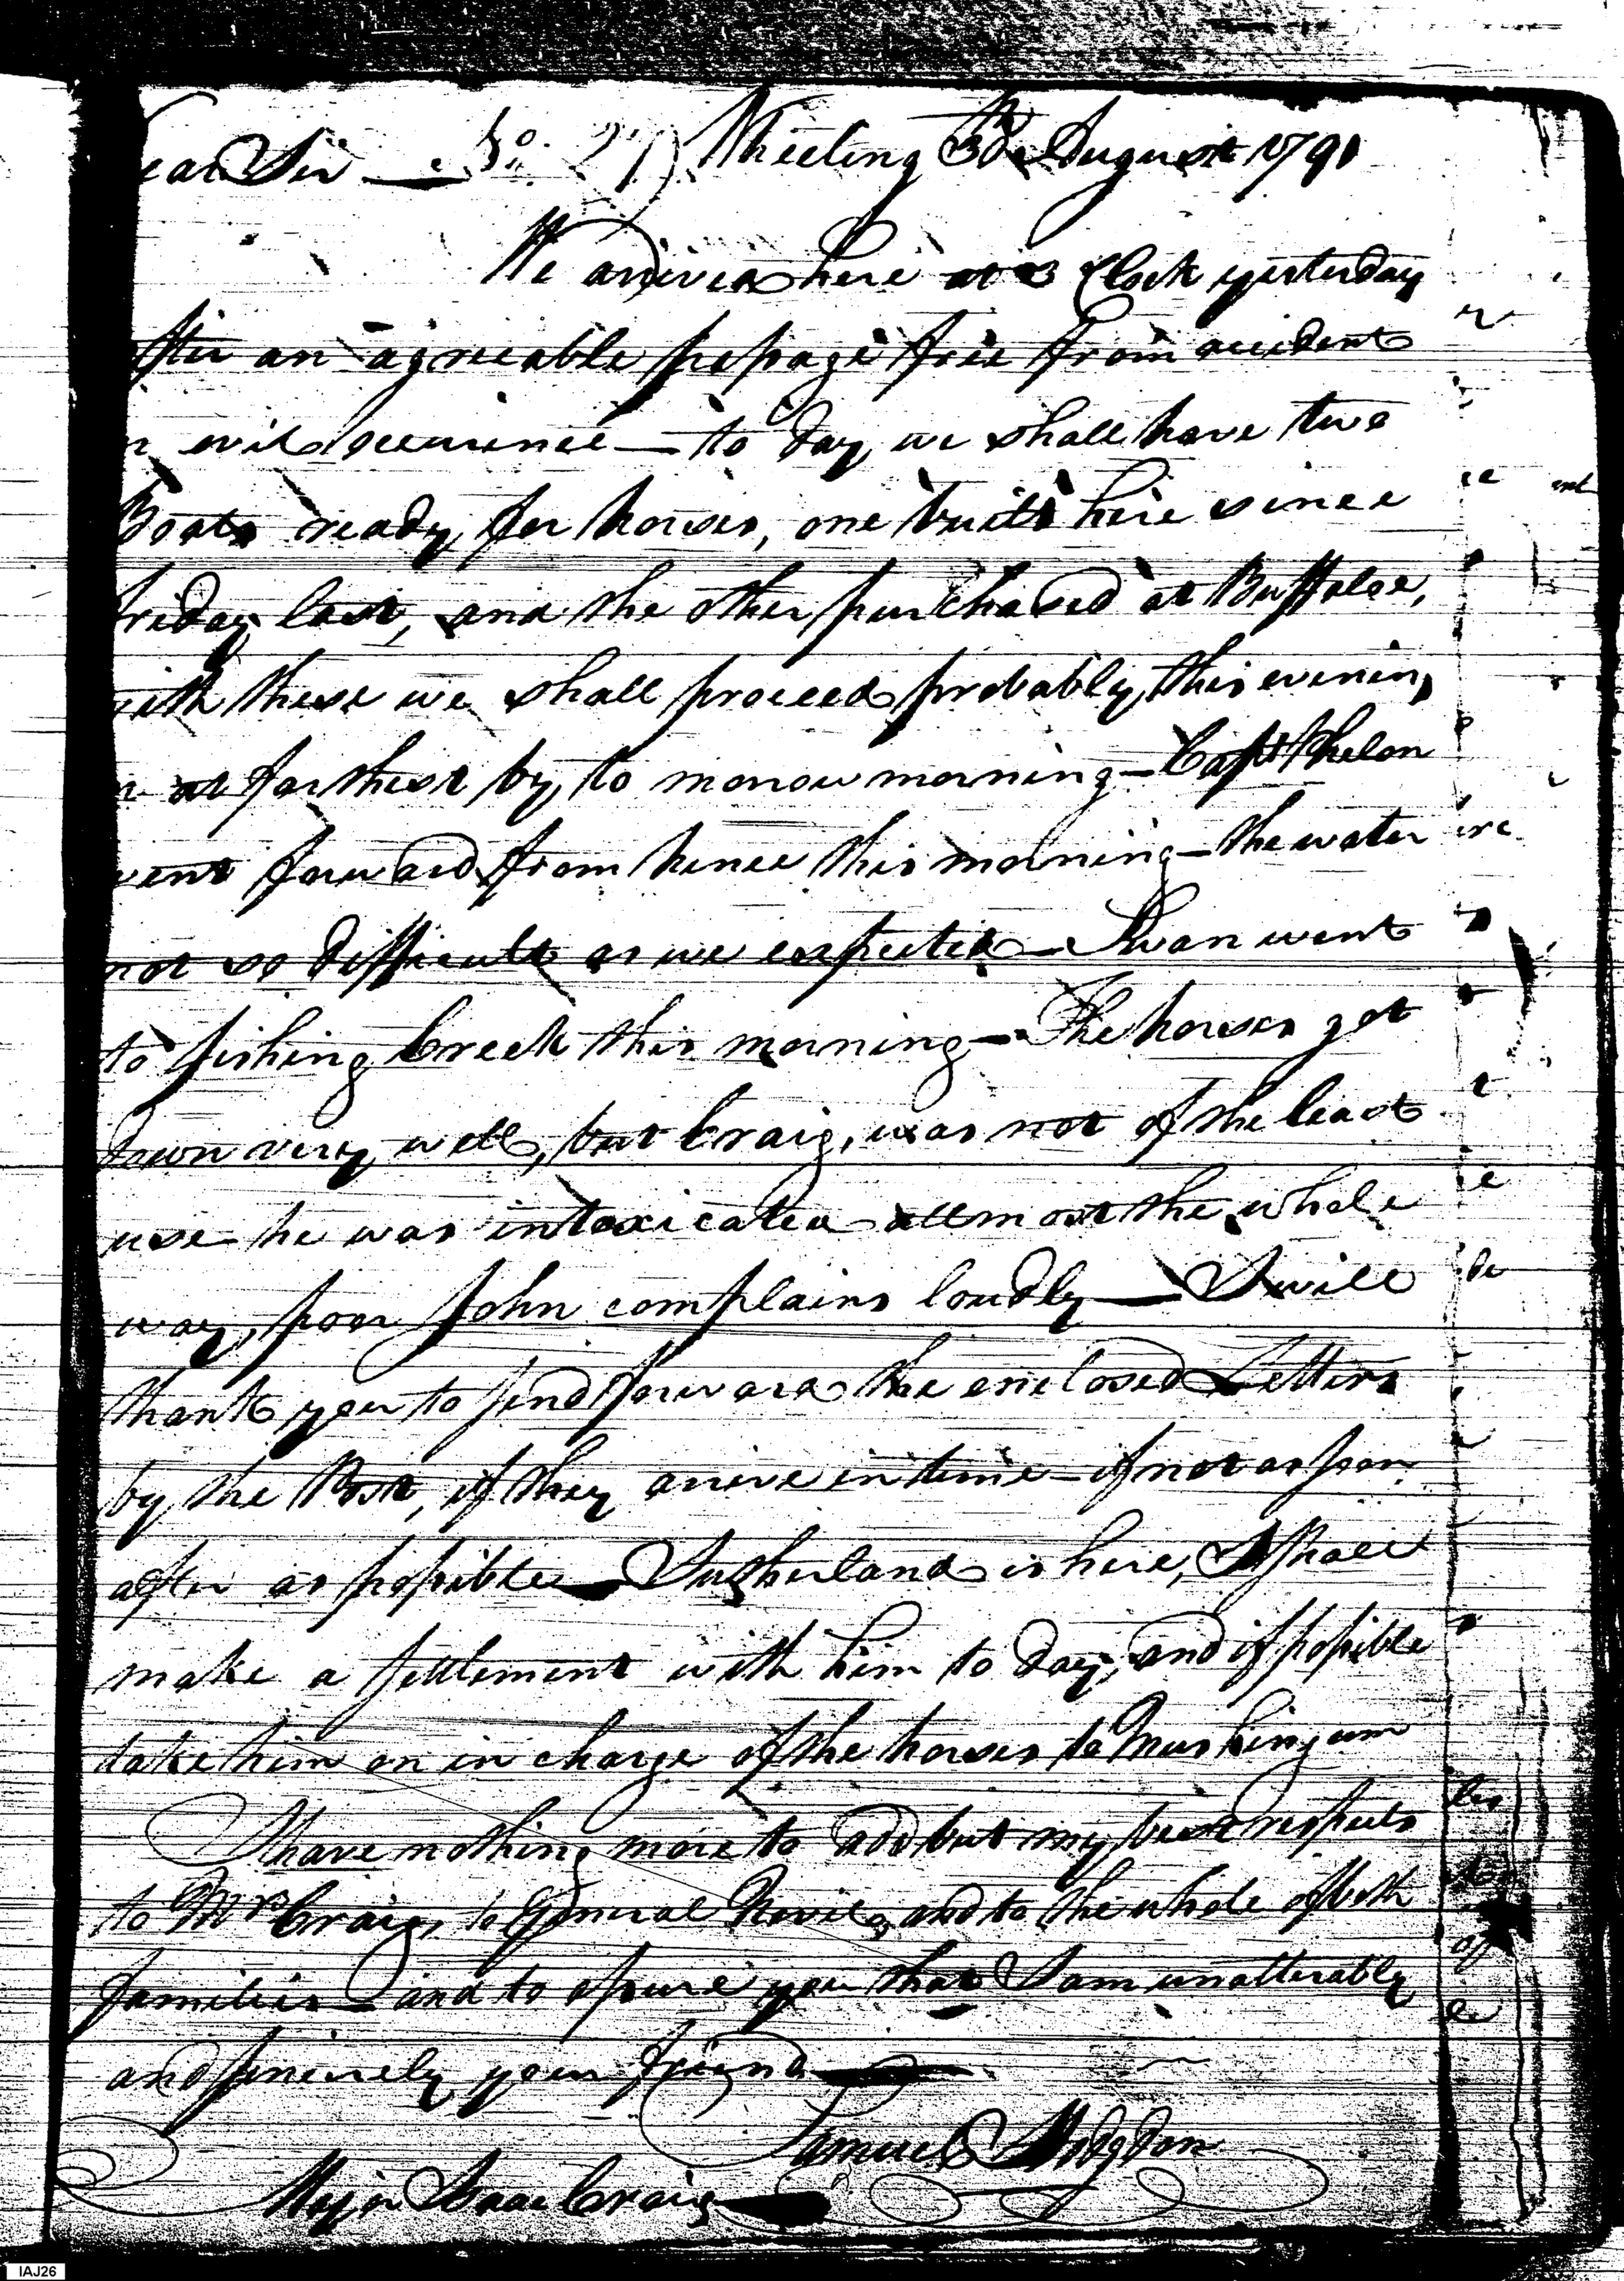 ear Sir — No. 27) Wheeling 30th August 1791
We arrived here at 3 Clock yesterday
after an agreeable passage free from accident
r evil occurrence — to day we shall have two
Boats ready for horses, one built here since
friday last, and the other purchased at Buffaloe,
with these we shall proceed probably this evening
r at farthest by to morrow morning — Capt Phelon
went forward from hence this morning — the water
not so difficult as we expected — Swan went
to fishing Creek this morning — The horses got
down very well, but Craig, was not of the least
use he was intoxicated allmost the whole
way, poor John complains loudly — I will
thank you to send forward the enclosed Letters
by the Post, if they arrive in time — if not as soon
after as possible — Sutherland is here, I shall
make a settlement with him to day, and if possible
take him on in charge of the horses to Muskingum
I have nothing more to add but my best respects
to Mrs Craig, to General Nevil, and to the whole of both
families — and to assure you that I am unalterably
and sincerely your friend —
Samuel Hodgdon
Major Isaac Craig —
IAJ26